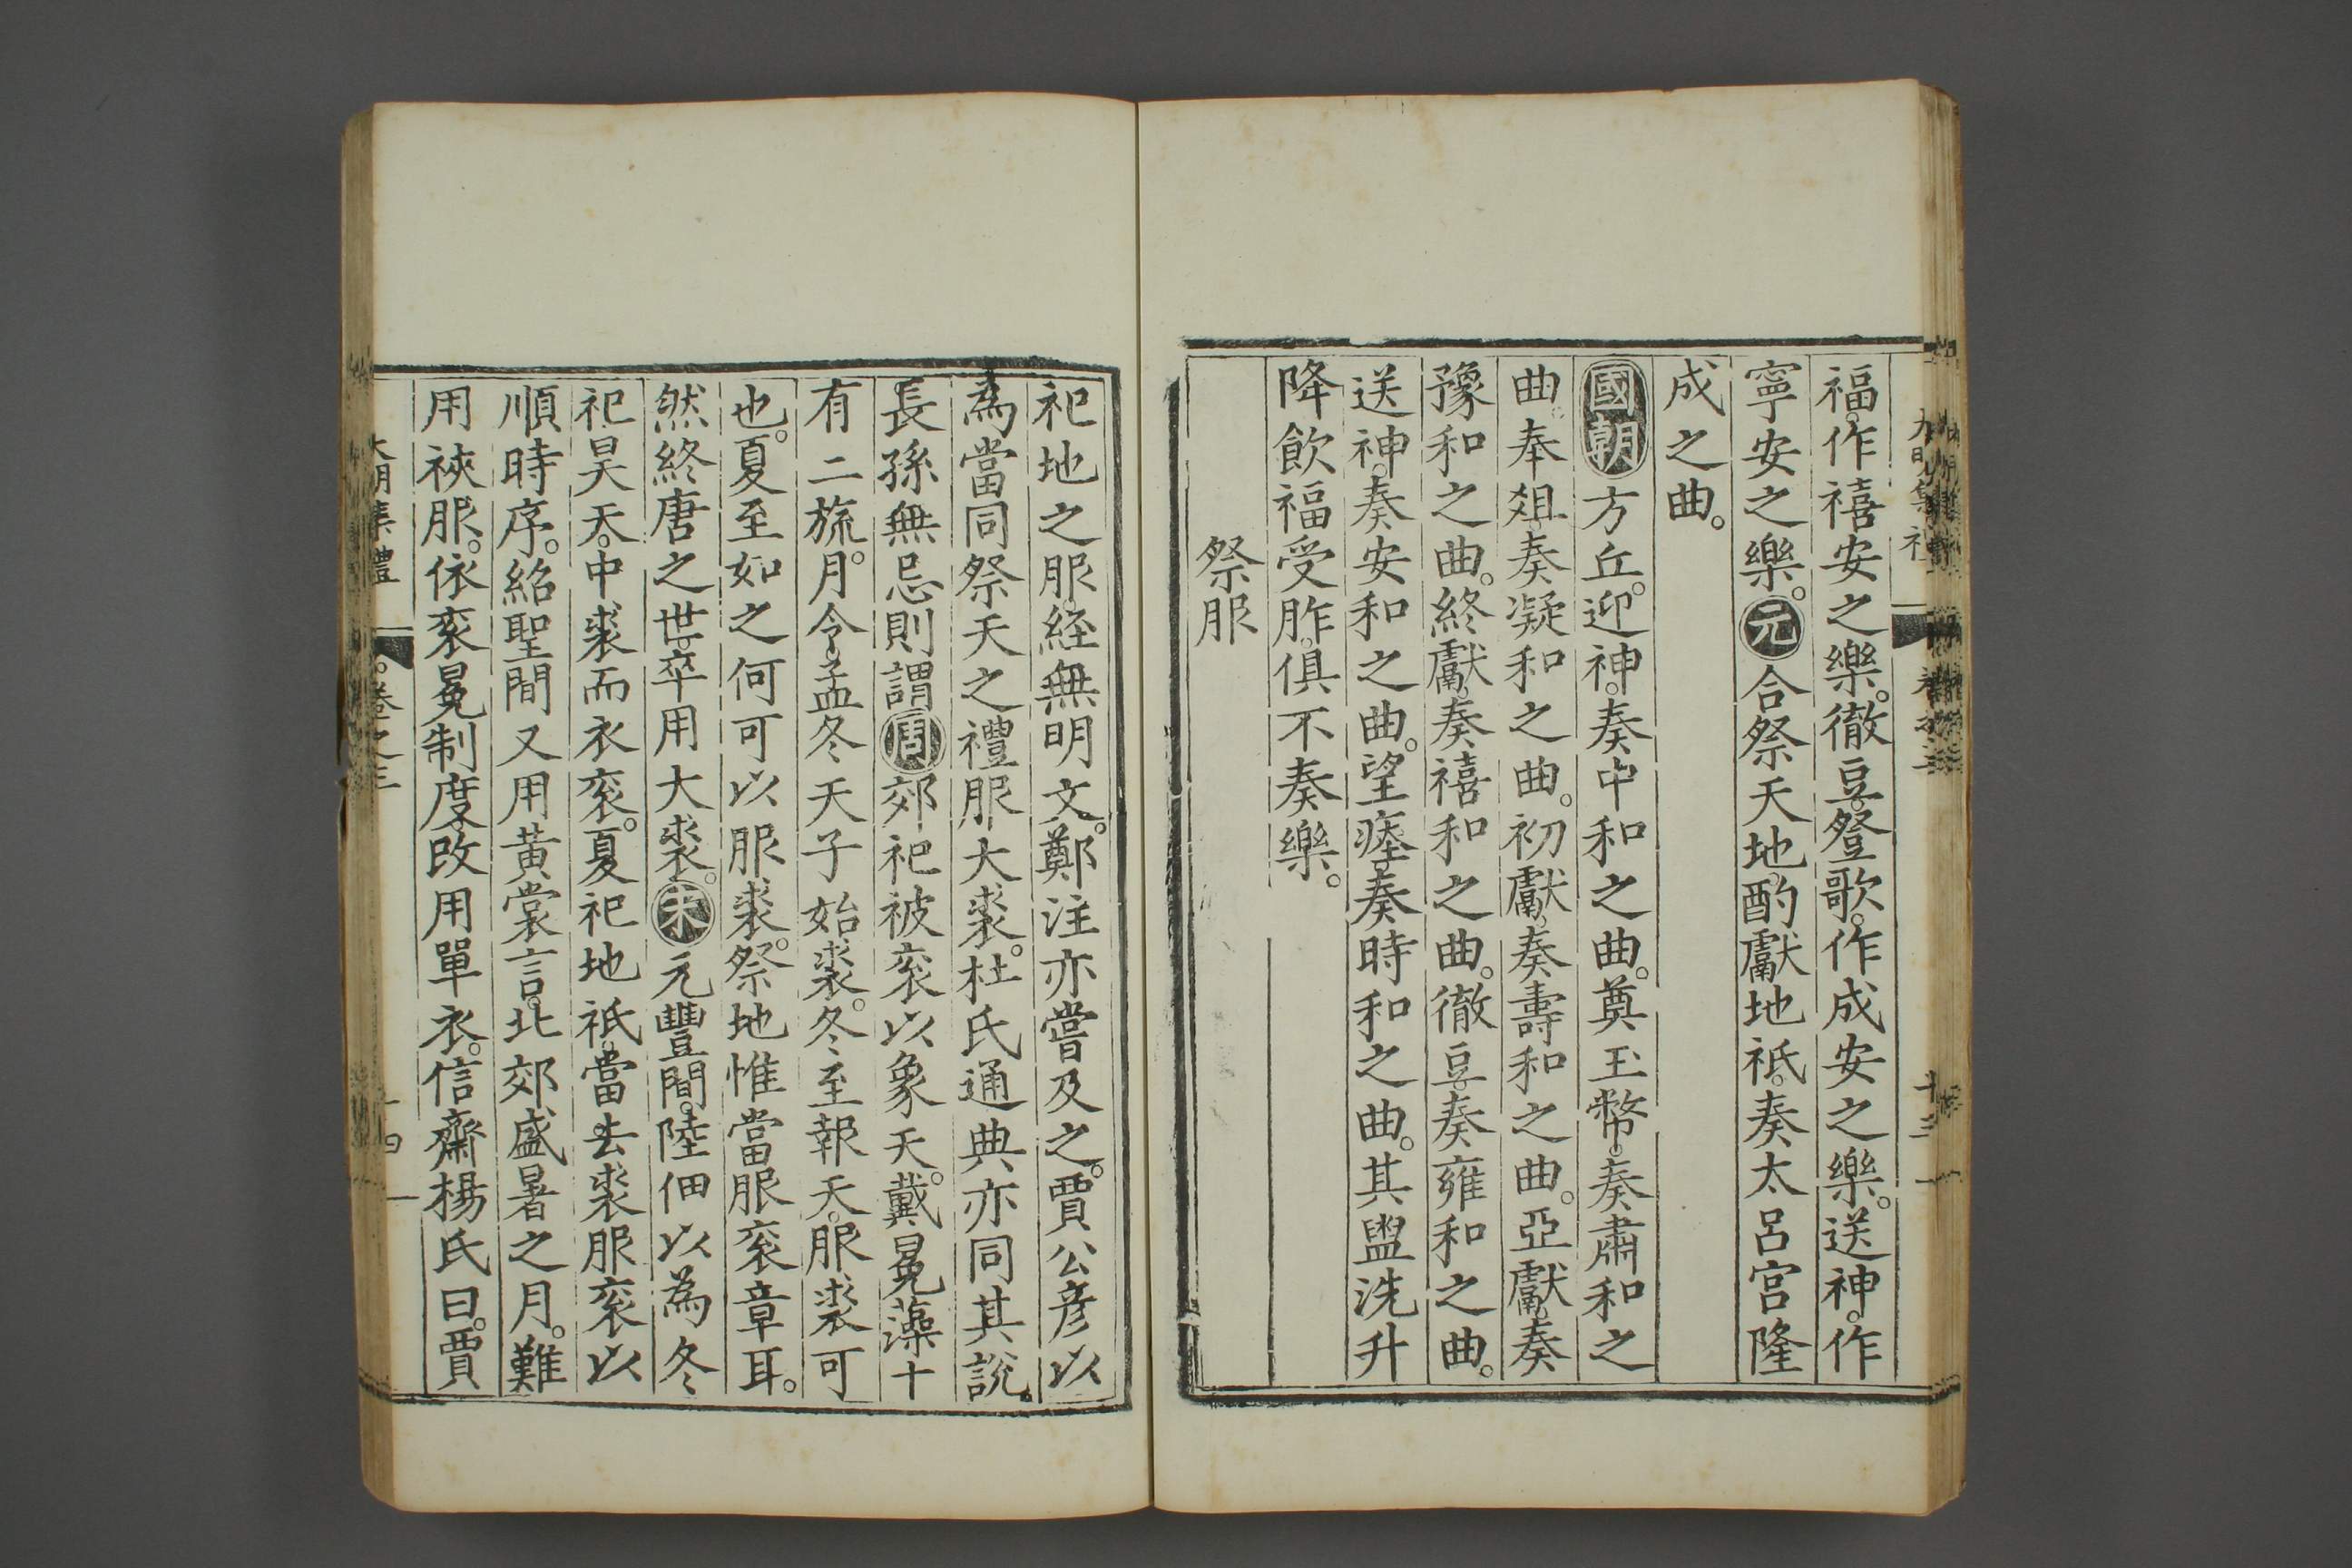 福。作禧安之樂。徹豆。登歌。作成安之樂。送神。作
寧安之樂。元合祭天地。酌獻地祇。奏太呂宮隆
成之曲。
國朝方丘。迎神。奏中和之曲。奠玉幣。奏肅和之
曲。奉俎。奏凝和之曲。初獻。奏壽和之曲。亞獻。奏
豫和之曲。終獻。奏禧和之曲。徹豆。奏雍和之曲。
送神。奏安和之曲。望瘞。奏時和之曲。其盥洗升
降飲福受胙。俱不奏樂。
祭服
祀地之服經無明文。鄭注亦嘗及之。賈公彦以
為當同祭天之禮服大裘。杜氏通典亦同其說。
長孫無忌則謂周郊祀被衮以象天。戴冕藻十
有二旒。月令。孟冬天子始裘。冬至報天。服裘可
也。夏至如之何可以服裘。祭地惟當服衮章耳。
然終唐之世。卒用大裘。宋元豐間。陸佃以為冬
祀昊天。中裘而衣衮。夏祀地祇。當去裘服衮以
順時序。紹聖間又用黃裳言。北郊盛暑之月。難
用裌服。依衮冕制度。改用單衣。信齋楊氏曰。賈
大明集禮 卷之三